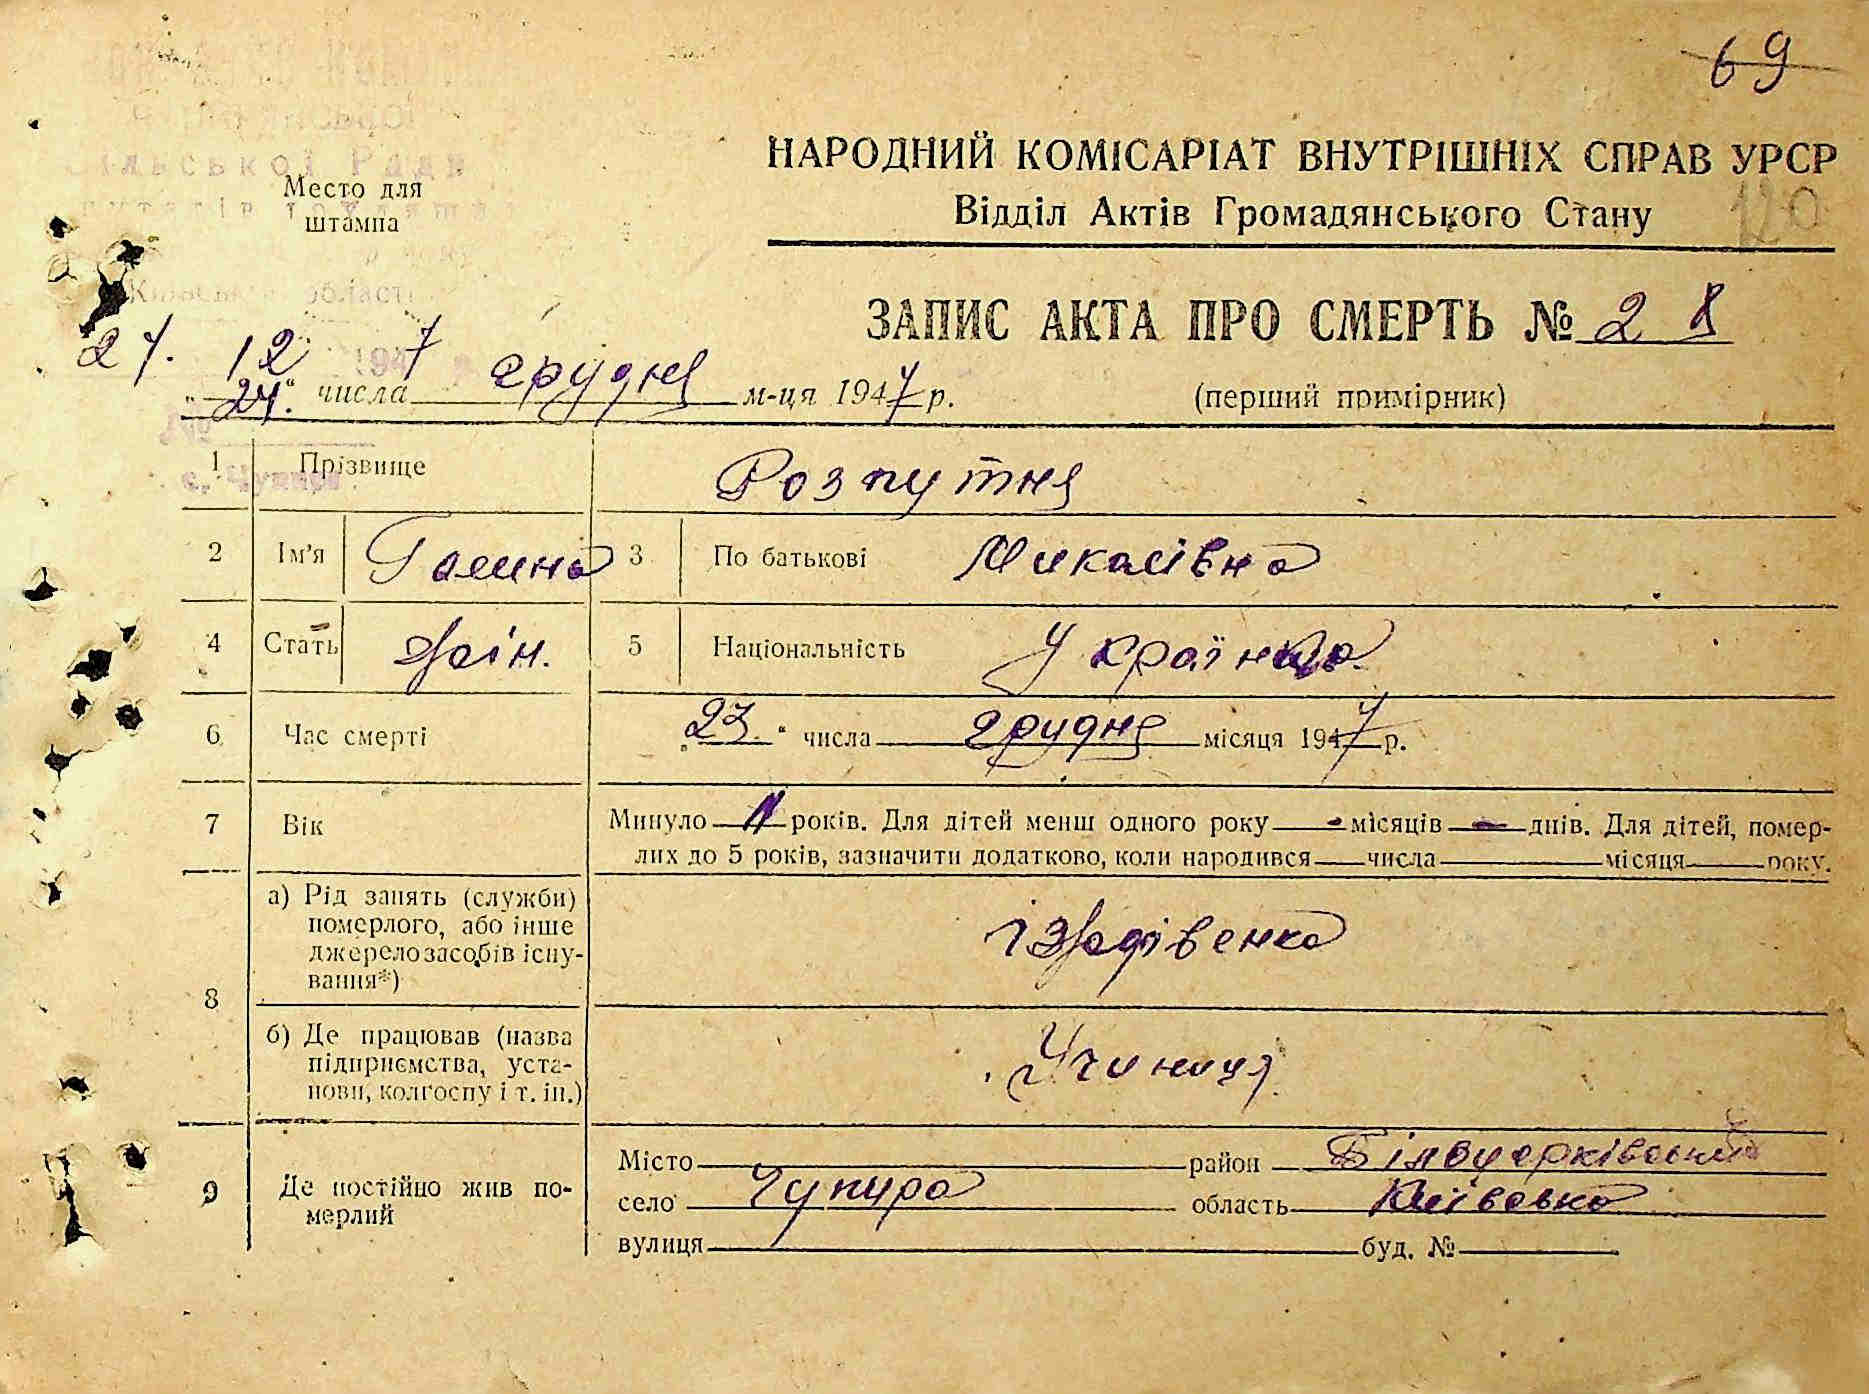 69
НАРОДНИЙ КОМІСАРІАТ ВНУТРІШНІХ СПРАВ УРСР
Відділ Актів Громадянського Стану
120
Сільської Ради
Место для
штампа
області
ЗАПИС АКТА ПРО СМЕРТЬ № 28
(перший примірник)
24. 12 1947
"24." числа грудня м-ця 1947 р.
№
1 Прізвище Розпутня
2 Ім'я Галина 3 По батькові Миколаївна
4 Стать жін. 5 Національність Українка
6 Час смерті "23" числа грудня місяця 1947 р.
7 Вік Минуло 11 років. Для дітей менш одного року - місяців - днів. Для дітей, помер-
лих до 5 років, зазначити додатково, коли народився числа місяця року.
8 а) Рід занять (служби)
померлого, або інше
джерело засобів існу-
вання*)
іждівенка
б) Де працював (назва
підприємства, уста-
нови, колгоспу і т. ін.)
Учниця
9 Де постійно жив по-
мерлий
Місто район Білоцерківський
село Чупира область Київська
вулиця буд. №